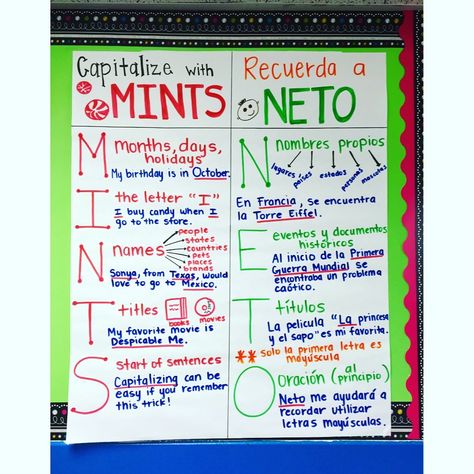 Capitalize with
MINTS
M
months, days,
holidays
My birthday is in October.
I
the letter "I"
I buy candy when I
go to the store.
N
names
people
states
countries
pets
places
brands
Sonya, from Texas, would
love to go to Mexico.
T
titles
books
movies
My favorite movie is
Despicable Me.
S
start of sentences
Capitalizing can be
easy if you remember
this trick!
Recuerda a
NETO
N
nombres propios
lugares
países
estados
personas
mascotas
En Francia, se encuentra
la Torre Eiffel.
E
eventos y documentos
históricos
Al inicio de la Primera
Guerra Mundial se
encontraba un problema
caótico.
T
títulos
La pelicula "La princesa
y el sapo" es mi favorita.
** solo la primera letra es
mayúscula
O
Oración (al
principio)
Neto me ayudará a
recordar utilizar
letras mayúsculas.